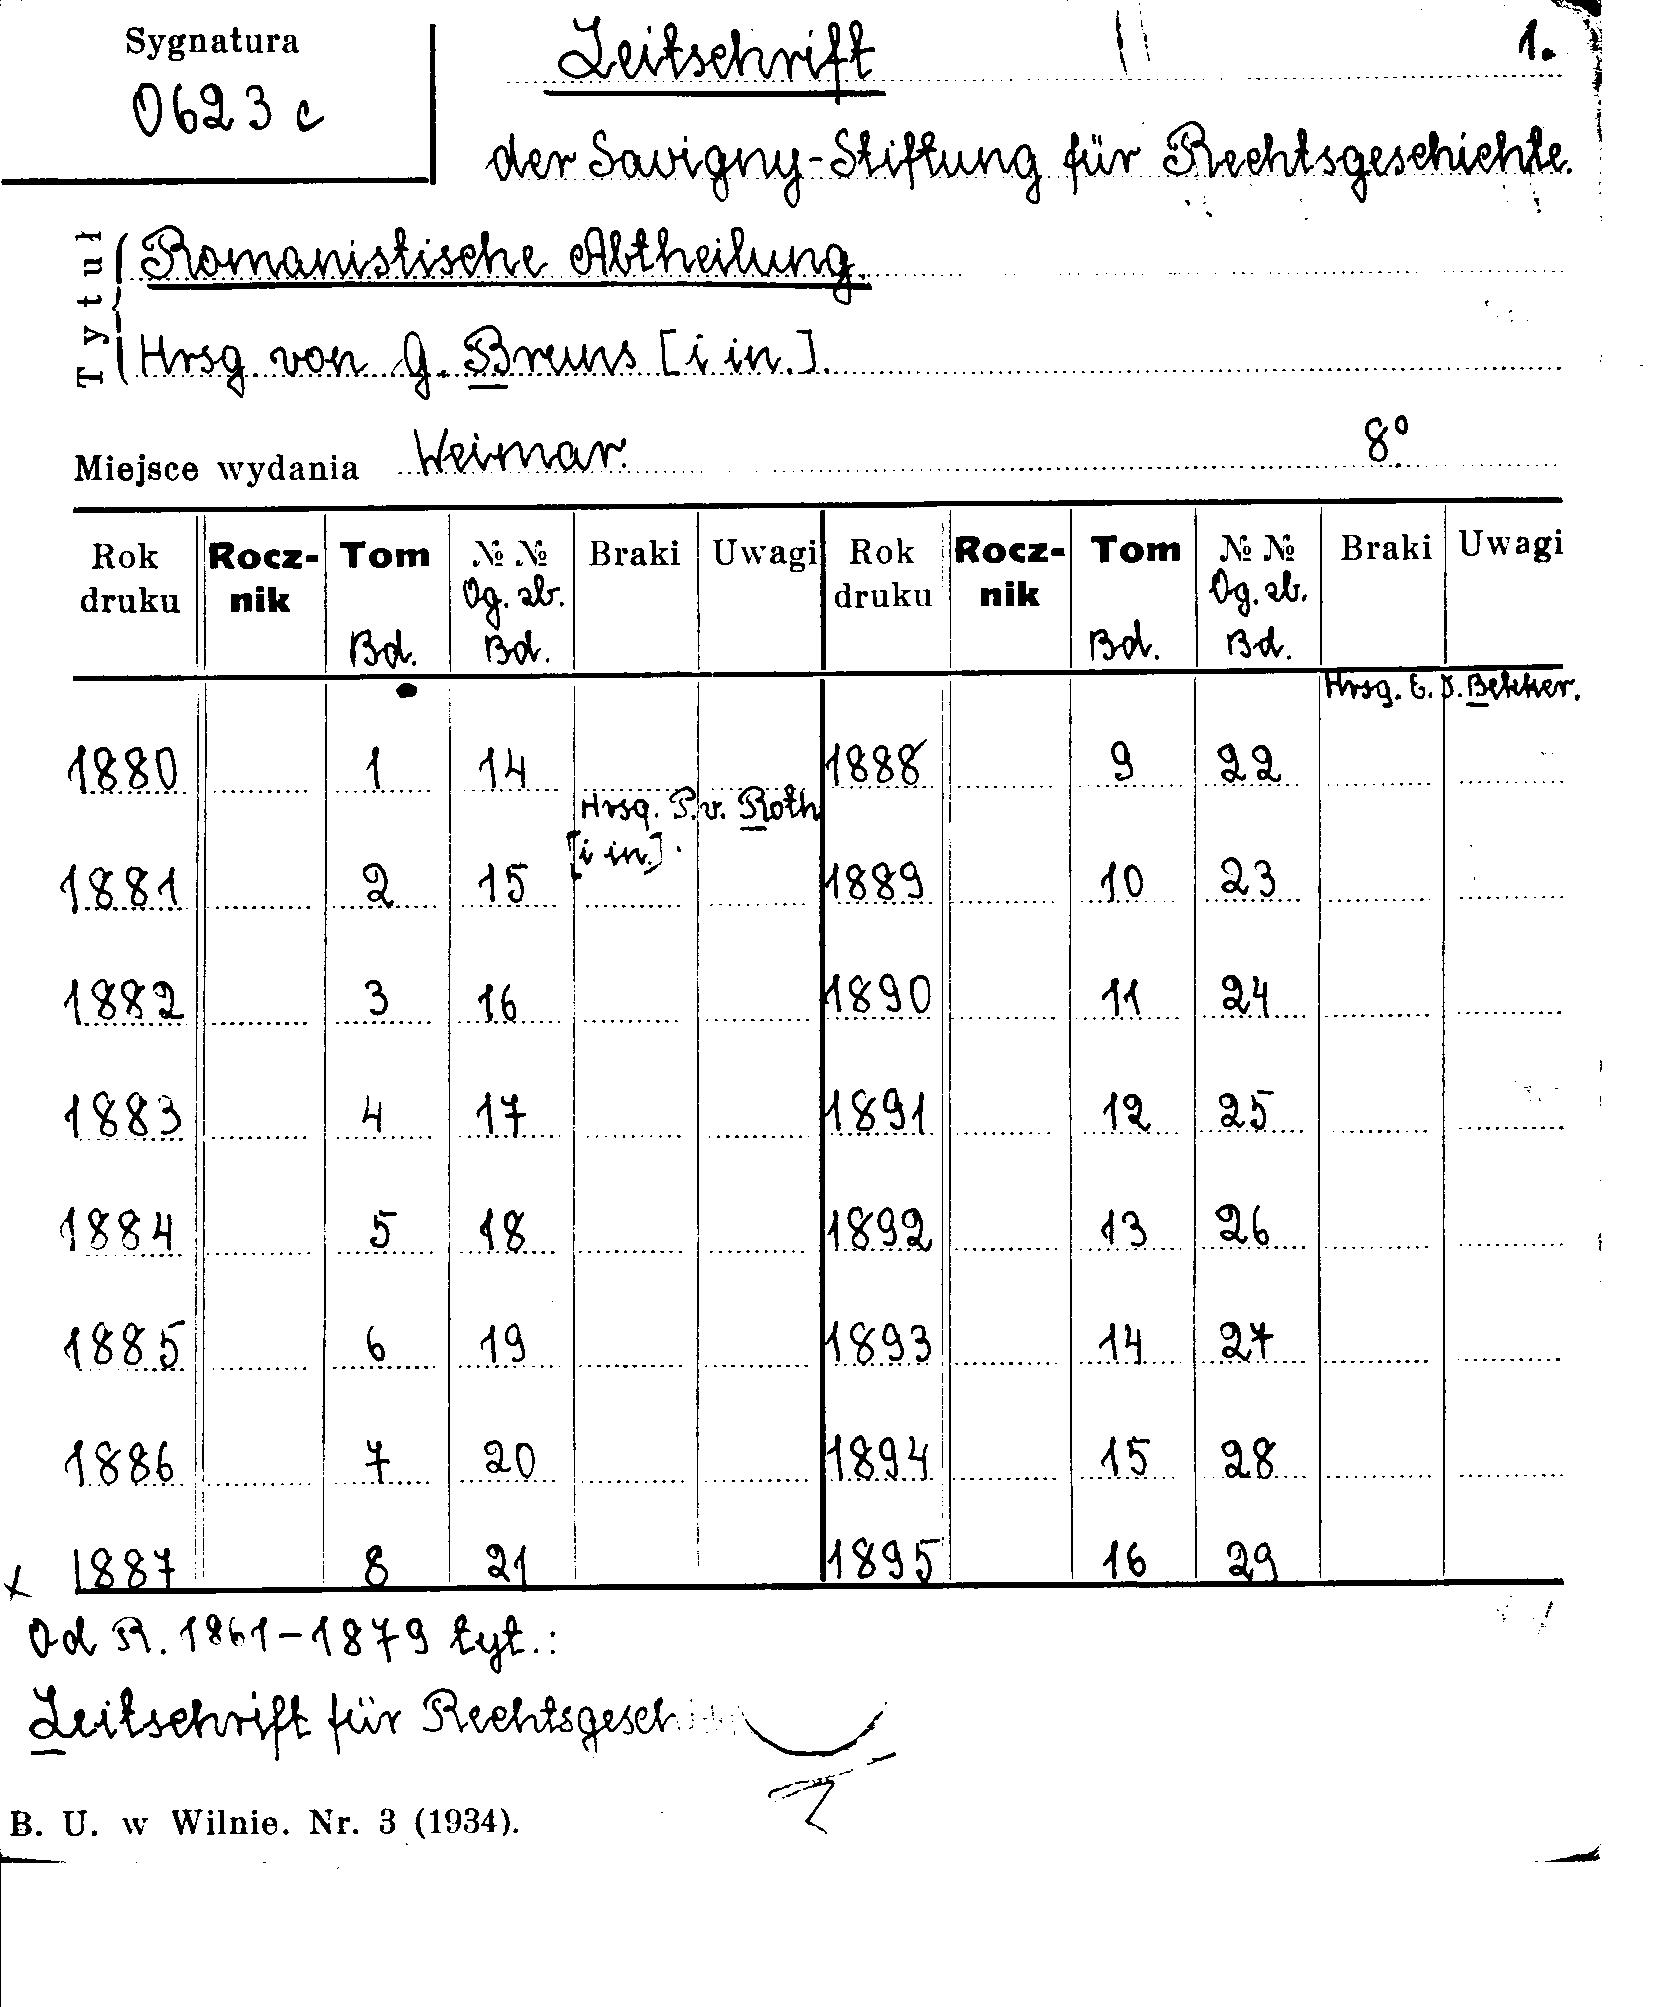 Sygnatura
0623 c
Zeitschrift
1.
der Savigny-Stiftung für Rechtsgeschichte.
Tytuł
Romanistische Abtheilung.
Hrsg. von G. Bruns [i in.].
Miejsce wydania Weimar. 8°
Rok druku Rocz-nik Tom Bd. № № Og. zb. Bd. Braki Uwagi Rok druku Rocz-nik Tom Bd. № № Og. zb. Bd. Braki Uwagi
Hrsg. E. I. Bekker.
1880 1 14 1888 9 22
Hrsg. P. v. Roth
[i in.].
1881 2 15 1889 10 23
1882 3 16 1890 11 24
1883 4 17 1891 12 25
1884 5 18 1892 13 26
1885 6 19 1893 14 27
1886 7 20 1894 15 28
x 1887 8 21 1895 16 29
Od R. 1861-1879 tyt.:
Zeitschrift für
B. U. w Wilnie. Nr. 3 (1934).